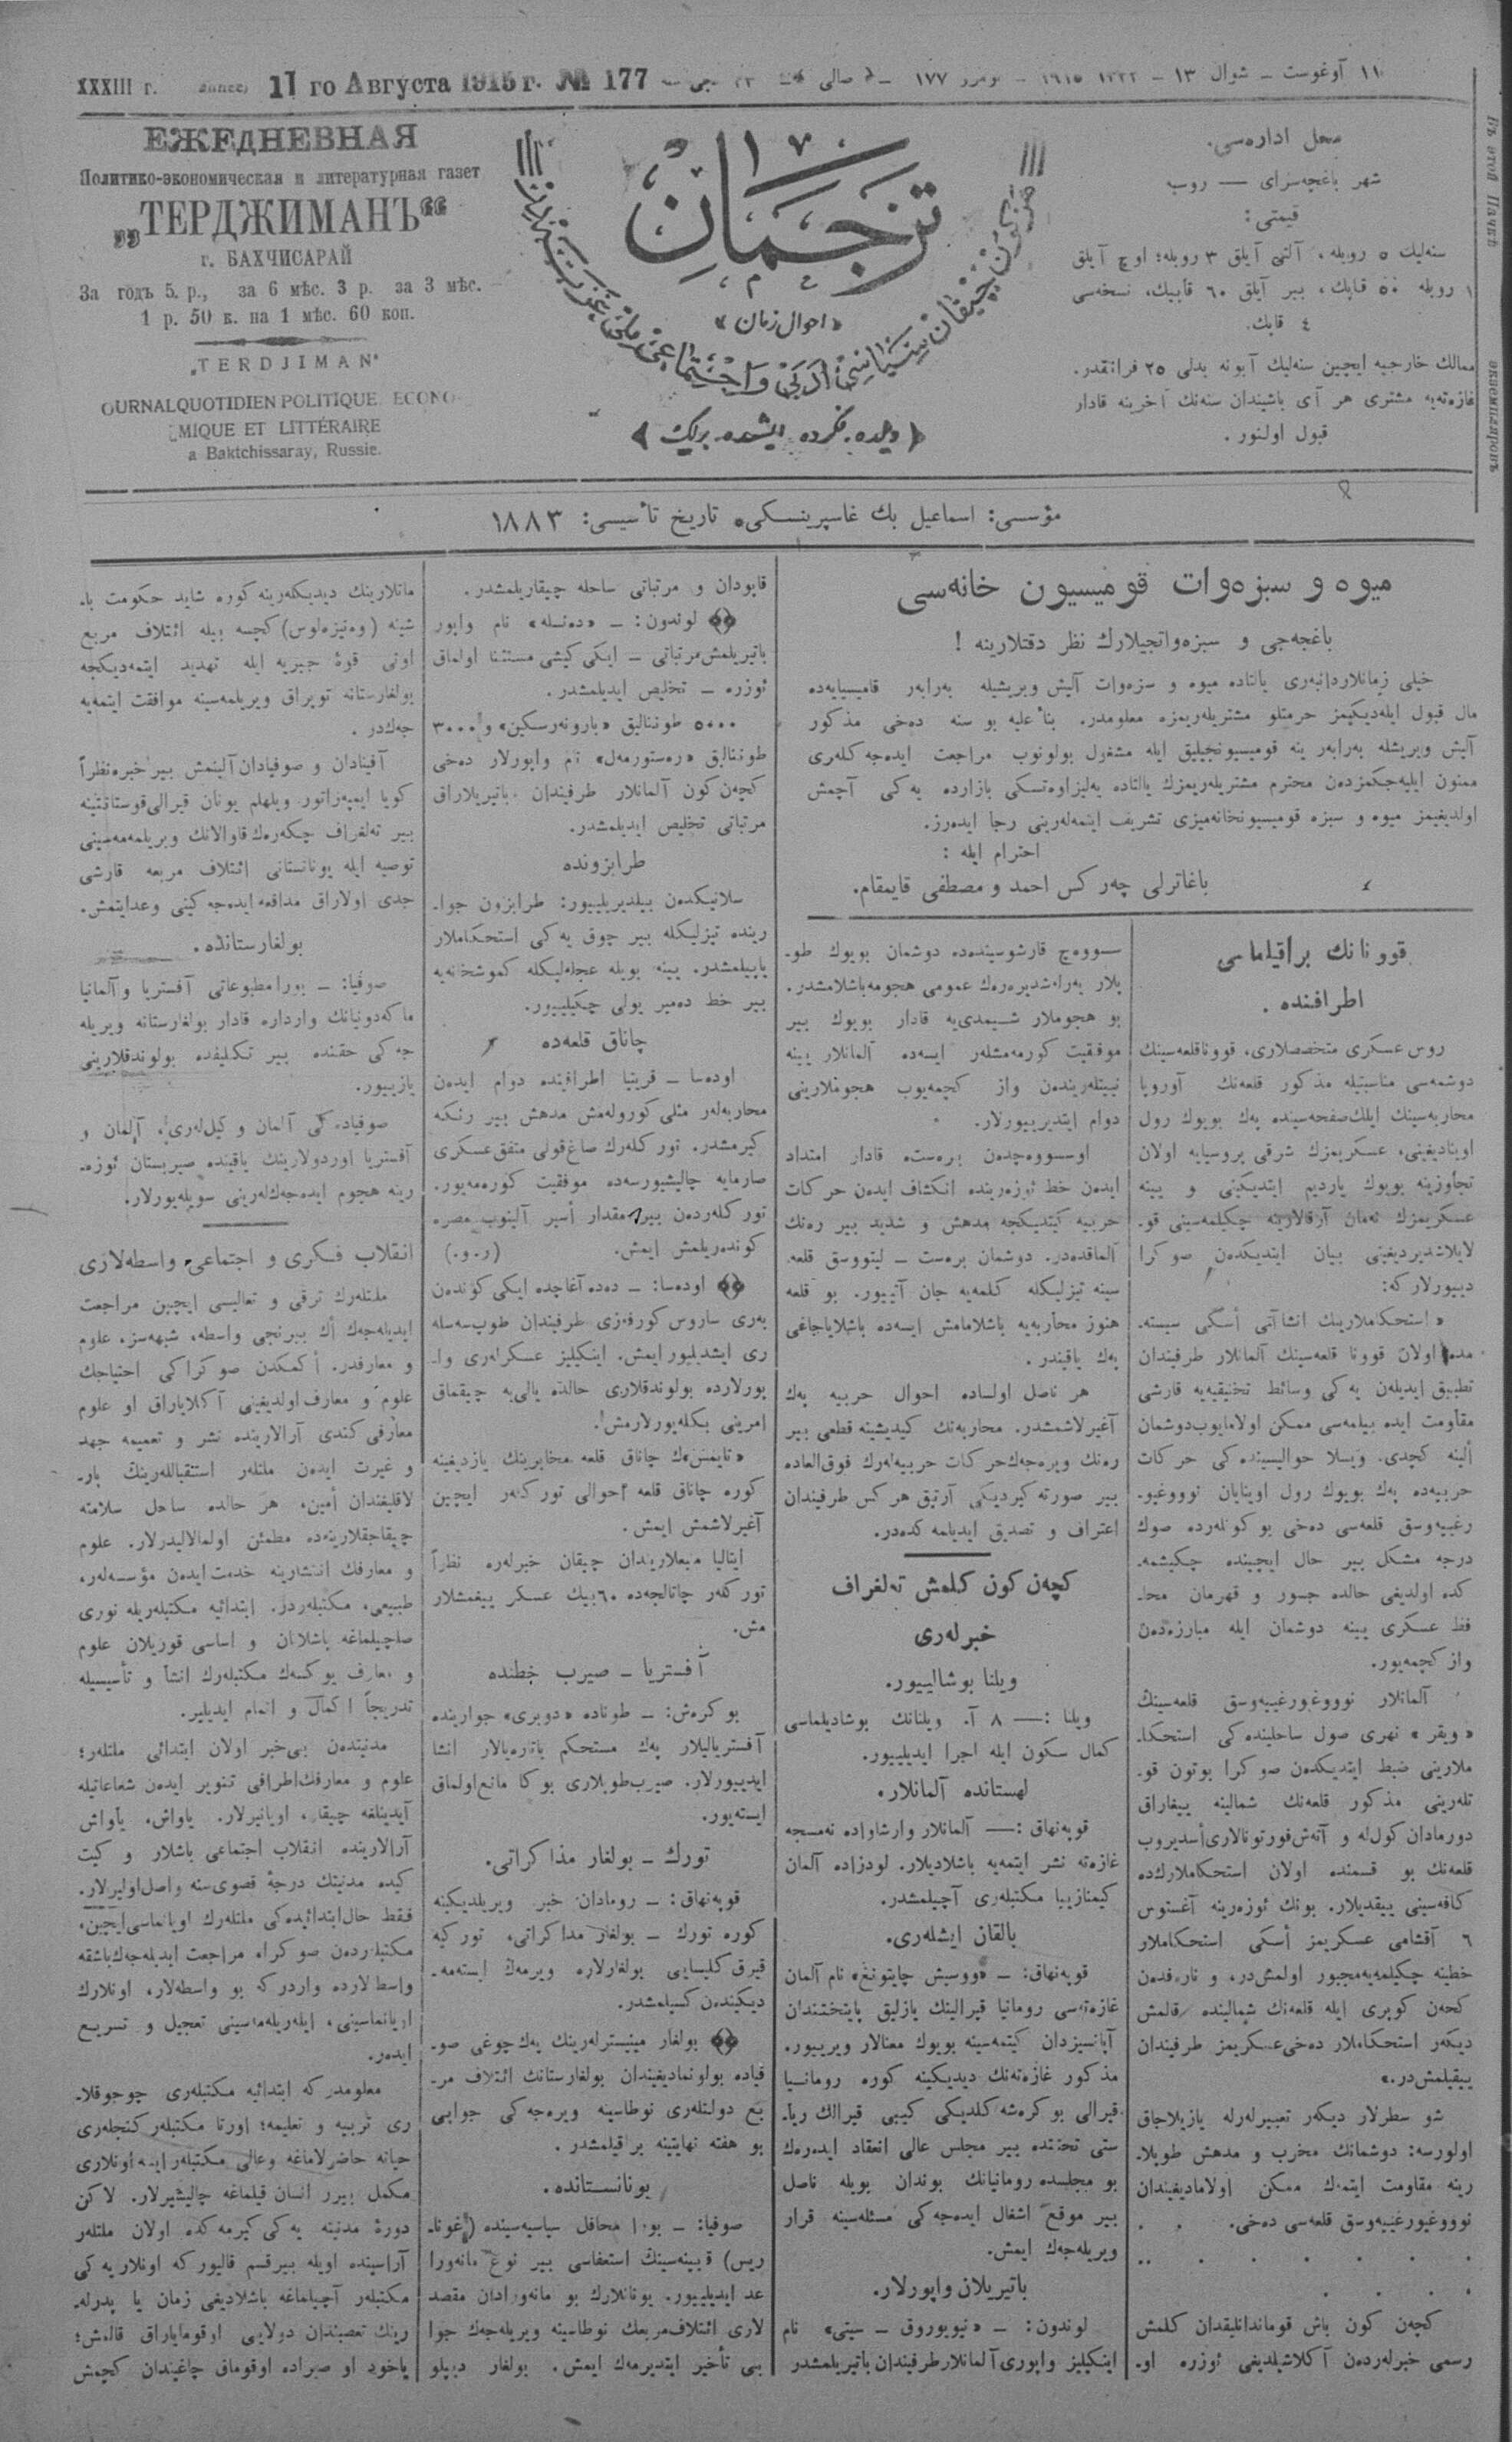 XXXIII г. 11 го Августа 1915 г. № 177
١١ آوغوست ــ شوال ١٣ ــ ١٩١٥ ــ نومرو ١٧٧
ЕЖЕДНЕВНАЯ
Политико-экономическая и литературная газет
„ТЕРДЖИМАНЪ“
г. БАХЧИСАРАЙ
За годъ 5. р., за 6 мѣс. 3 р. за 3 мѣс.
1 р. 50 к. на 1 мѣс. 60 коп.
„TERDJIMAN“
OURNAL QUOTIDIEN POLITIQUE. ECONO-
MIQUE ET LITTÉRAIRE
a Baktchissaray, Russie.
ترجمان
«احوال زمان»
«دلده، فكرده، ايشده برلك»
محل اداره‌سى.
شهر باغچه‌سراى — روسيه
قيمتى:
سنه‌ليك ٥ روبله، آلتى آيلق ٣ روبله؛ اوچ آيلق
١ روبله ٥٠ قاپك، بير آيلق ٦٠ قاپيك، نسخه‌سى
٤ قاپك.
ممالك خارجيه ايچين سنه‌ليك آبونه بدلى ٢٥ فرانقدر.
غازه‌ته‌يه مشترى هر آى باشيندان سنه‌نك آخرينه قادار
قبول اولنور.
مؤسسى: اسماعيل بك غاسپرينسكى، تاريخ تأسيسى: ١٨٨٣
ميوه و سبزه‌وات قوميسيون خانه‌سى
باغچه‌جى و سبزه‌واتجيلارك نظر دقتلارينه !
خيلى زمانلاردانبه‌رى يالتاده ميوه و سبزه‌وات آليش ويريشيله به‌رابه‌ر قاميسيايه‌ده
مال قبول ايله‌ديكيمز حرمتلو مشتريله‌ريمزه معلومدر. بناً عليه بو سنه ده‌خى مذكور
آليش ويريشله به‌رابه‌ر ينه قوميسيونجيليق ايله مشغول بولونوب مراجعت ايده‌جه‌كله‌رى
ممنون ايليه‌جكمزدن محترم مشتريله‌ريمزك يالتاده يه‌ليزاوه‌تسكى بازارده يه‌كى آچمش
اولديغيمز ميوه و سبزه قوميسيونخانه‌ميزى تشريف ايتمه‌له‌رينى رجا ايده‌رز.
احترام ايله :
باغاترلى چه‌ركس احمد و مصطفى قايمقام.
قوونانك براقيلماسى
اطرافنده .
روس عسكرى متخصصلارى، قووناقلعه‌سينك
دوشمه‌سى مناسبتيله مذكور قلعه‌نك آوروپا
محاربه‌سينك ايلك صفحه‌سينده يه‌ك بويوك رول
اوينادیغينى، عسكريمزك شرقى پروسيايه اولان
تجاوزينه بويوك يارديم ايتديكينى و يينه
عسكريمزك ته‌مان آرقالارينه چكيلمه‌سينى قو-
لايلاشديرديغينى بيان ايتديكدن صوكرا
دييورلاركه:
«استحكاملارينك انشاآتى أسكى سيسته-
مده اولان قوونا قلعه‌سينك آلمانلار طرفيندان
تطبيق ايديلن يه‌كى وسائط تخنيقيه‌يه قارشى
مقاومت ايده بيلمه‌سى ممكن اولامايوب دوشمان
ألينه كچدى. ويسلا حواليسينده‌كى حركات
حربيه‌ده يه‌ك بويوك رول اوينايان نوووغيو-
رغييه‌وسق قلعه‌سى ده‌خى بو كونله‌رده صوك
درجه مشكل بير حال ايچينده چكيشمه-
كده اولديغى حالده جسور و قهرمان محا-
فظ عسكرى يينه دوشمان ايله مبارزه‌دن
واز كچمه‌يور.
آلمانلار نوووغيورغييه‌وسق قلعه‌سينك
«ويقر» نهرى صول ساحلينده‌كى استحكا-
ملارينى ضبط ايتديكدن صوكرا بوتون قو-
تله‌رينى مذكور قلعه‌نك شمالينه ييغاراق
دورمادان كولله و آتش فورتونالارى أسديروب
قلعه‌نك بو قسمنده اولان استحكاملارك‌ده
كافه‌سينى ييقديلار. بونك ئوزه‌رينه آغستوس
٦ آقشامى عسكريمز أسكى استحكاملار
خطينه چكيلمه‌يه مجبور اولمش‌در، و ناره‌فدن
كچن كوپرى ايله قلعه‌نك شمالينده قالمش
ديكه‌ر استحكاملار ده‌خى عسكريمز طرفيندان
ييقيلمش‌در.»
شو سطرلار ديكه‌ر تعبيرله‌رله يازيلاجاق
اولورسه: دوشمانك مخرب و مدهش طوپلا-
رينه مقاومت ايتمك ممكن اولاماديغيندان
نوووغيورغييه‌وسق قلعه‌سى ده‌خى. . .
كچن كون باش قوماندانليقدان كلمش
رسمى خبرله‌ردن آكلاشيلديغى ئوزره او-
سووه‌چ قارشوسينده‌ده دوشمان بويوك طو-
پلار يه‌رله‌شديره‌رك عمومى هجومه باشلامشدر.
بو هجوملار شيمدى‌يه قادار بويوك بير
موفقيت كورمه‌مشله‌ر ايسه‌ده آلمانلار يينه
نيتله‌ريندن واز كچمه‌يوب هجوملارينى
دوام ايتديرييورلار.
اوسسووه‌چدن بره‌سته قادار امتداد
ايدن خط ئوزه‌رينده انكشاف ايدن حركات
حربيه كيتديكچه مدهش و شديد بير ره‌نك
آلماقده‌در. دوشمان بره‌ست ــ ليتووسق قلعه-
سينه تيزليكله كلمه‌يه جان آتييور. بو قلعه
هنوز محاربه‌يه باشلامامش ايسه‌ده باشلاياجاغى
يه‌ك ياقيندر.
هر ناصل اولساده احوال حربيه يه‌ك
آغيرلاشمشدر. محاربه‌نك كيديشينه قطعى بير
ره‌نك ويره‌جك حركات حربيه‌له‌رك فوق العاده
بير صورته كيرديكى آرتيق هر كس طرفيندان
اعتراف و تصديق ايديلمه‌كده‌در.
كچه‌ن كون كلمش ته‌لغراف
خبرله‌رى
ويلنا بوشالييور.
ويلنا :— ٨ آ. ويلنانك بوشاديلماسى
كمال سكون ايله اجرا ايديلييور.
لهستانده آلمانلار.
قوپه‌نهاق :— آلمانلار وارشاواده نه‌مسجه
غازه‌ته نشر ايتمه‌يه باشلاديلار. لودزاده آلمان
كيمنازييا مكتبله‌رى آچيلمشدر.
بالقان ايشله‌رى.
قوپه‌نهاق: ــ «ووسيش چايتونغ» نام آلمان
غازه‌ته‌سى رومانيا قيرالينك يازليق پايتختندان
آپانسيزدان كيتمه‌سينه بويوك معنالار ويرييور.
مذكور غازه‌ته‌نك ديديكينه كوره رومانيا
قيرالى بوكره‌شه كلديكى كيبى قيرالك ريا-
ستى تحتنده بير مجلس عالى انعقاد ايده‌رك
بو مجلسده رومانيانك بوندان بويله ناصل
بير موقع اشغال ايده‌جه‌كى مسئله‌سينه قرار
ويريله‌جك ايمش.
باتيريلان واپورلار.
لوندون: ــ «نيويوروق ــ سيتى» نام
اينكيليز واپورى آلمانلار طرفيندان باتيريلمشدر
قاپودان و مرتباتى ساحله چيقاريلمشدر.
لوندون: ــ «ده‌نسله» نام واپور
باتيريلمش مرتباتى ــ ايكى كيشى مستثنا اولماق
ئوزره ــ تخليص ايديلمشدر.
٥٠٠٠ طوننالیق «بارونه‌رسكين» و ٣٠٠٠
طوننالیق «ره‌ستورمه‌ل» نام واپورلار ده‌خى
كچه‌ن كون آلمانلار طرفيندان باتيريلاراق
مرتباتى تخليص ايديلمشدر.
طرابزونده
سلانيكدن بيلديريلييور: طرابزون جوا-
رينده تيزليكله بير چوق يه‌كى استحكاملار
ياپيلمشدر. يينه بويله عجله‌ليكله كموشخانه‌يه
بير خط ده‌مير يولى چكيلييور.
چاناق قلعه‌ده
اوده‌سا ــ قريتيا اطرافينده دوام ايدن
محاربه‌لر مثلى كورولمه‌مش مدهش بير رنكه
كيرمشدر. توركله‌رك صاغ قولى متفق عسكرى
صارمايه چاليشيورسه‌ده موفقيت كوره‌مه‌يور.
توركله‌ردن بير مقدار أسير آلينوب مصره
كونده‌ريلمش ايمش. (ر. و.)
اوده‌سا: ــ ده‌ده آغاچده ايكى كونده‌ن
به‌رى ساروس كورفه‌زى طرفيندان طوپ سه‌سله-
رى ايشديلييور ايمش. اينكيليز عسكرله‌رى وا-
پورلارده بولوندقلارى حالده يالى‌يه چيقماق
امرينى بكله‌يورلارمش.
«تايمس»ك چاناق قلعه مخابرينك يازديغينه
كوره چاناق قلعه احوالى توركلر ايچين
آغيرلاشمش ايمش.
ايتاليا منبعلاريندان چيقان خبرله‌ره نظراً
توركلر چاتالجه‌ده ٦٠ بيك عسكر ييغمشلار
مش.
آفستريا ــ صيرب خطنده
بوكره‌ش: ــ طوناده «دوبرى» جوارينده
آفسترياليلار يه‌ك مستحكم باتاره‌يالار انشا
ايدييورلار. صيرب طوپلارى بوكا مانع اولماق
ايسته‌يور.
تورك ــ بولغار مذاكراتى.
قوپه‌نهاق: ــ رومادان خبر ويريلديكينه
كوره تورك ــ بولغار مذاكراتى، توركيه
قيرق كليسايى بولغارلاره ويرمه‌ك ايسته‌مه-
ديكيندن كسيلمشدر.
بولغار مينيسترله‌رينك يه‌ك چوغى صو-
فياده بولونماديغيندان بولغارستانك ائتلاف مر-
بع دولتله‌رى نوطاسينه ويره‌جه‌كى جوابى
بو هفته نهايتينه براقيلمشدر.
يونانستانده.
صوفيا: ــ بورا محافل سياسيه‌سينده (غونا-
ريس) قبينه‌سينك استعفاسى بير نوع مانه‌ورا
عد ايديلييور. يونانلارك بو مانه‌ورادان مقصد
لارى ائتلاف مربعك نوطاسينه ويريله‌جك جوا
بى تأخير ايتديرمه‌ك ايمش. بولغار ديپلو
ماتلارينك ديديكله‌رينه كوره شايد حكومت با-
شينه (وه‌نيزه‌لوس) كچسه بيله ائتلاف مربع
اونى قوهٔ جبريه ايله تهديد ايتمه‌ديكچه
بولغارستانه توپراق ويريلمه‌سينه موافقت ايتمه‌يه
جه‌كدر.
آفينادان و صوفيادان آلينمش بير خبره نظراً
كويا ايمپه‌راتور ويلهلم يونان قيرالى قوستانتينه
بير ته‌لغراف چكه‌رك قاوالانك ويريلمه‌مه‌سينى
توصيه ايله يونانستانى ائتلاف مربعه قارشى
جدى اولاراق مدافعه ايده‌جه‌كينى وعد ايتمش.
بولغارستانده.
صوفيا: ــ بورا مطبوعاتى آفستريا و آلمانيا
ماكه‌دونيانك وارداره قادار بولغارستانه ويريله
جه‌كى حقنده بير تكليفده بولوندقلارينى
يازييور.
صوفياده‌كى آلمان وكيل‌له‌رى، آلمان و
آفستريا اوردولارينك ياقينده صيربستان ئوزه-
رينه هجوم ايده‌جه‌كله‌رينى سويله‌يورلار.
انقلاب فكرى و اجتماعى واسطه‌لارى
ملتله‌رك ترقى و تعاليسى ايچين مراجعت
ايديله‌جك أك بيرنجى واسطه، شبهه‌سز، علوم
و معارفدر. أكمكدن صوكراكى احتياجك
علوم و معارف اولديغينى آكلاياراق او علوم
معارفى كندى آرالارينده نشر و تعميمه جهد
و غيرت ايدن ملتلر استقباللارينك پار-
لاقليغندان أمين، هر حالده ساحل سلامته
چيقاجقلارينه‌ده مطمئن اولمالاليدرلار. علوم
و معارفك انتشارينه خدمت ايدن مؤسسه‌له‌ر،
طبيعى، مكتبله‌ردر. ابتدائيه مكتبله‌ريله نورى
صاچيلماغه باشلانان و اساسى قوريلان علوم
و معارف يوكسك مكتبله‌رك انشا و تأسيسيله
تدريجاً اكمال و اتمام ايديلير.
مدنيتدن بى‌خبر اولان ابتدائى ملتلر؛
علوم و معارفك اطرافى تنوير ايدن شعاعاتيله
آيدينلغه چيقار، اويانيرلار. ياواش، ياواش
آرالارينده انقلاب اجتماعى باشلار و كيت
كيده مدنيتك درجهٔ قصوى‌سنه واصل اوليرلار.
فقط حال ابتدائيده‌كى ملتله‌رك اويانماسى ايچين،
مكتبلردن صوكرا، مراجعت ايديله‌جك باشقه
واسطلارده واردركه بو واسطه‌لار، اونلارك
اويانماسينى، ايله‌ريله‌مه‌سينى تعجيل و تسريع
ايده‌ر.
معلومدركه ابتدائيه مكتبله‌رى چوجوقلا-
رى تربيه و تعليمه؛ اورتا مكتبلر كنجله‌رى
حياته حاضرلاماغه و عالى مكتبلر ايسه اونلارى
مكمل بيرر انسان قيلماغه چاليشيرلار. لاكن
دورهٔ مدنيته يه‌كى كيرمه‌كده اولان ملتلر
آراسينده اويله بيرقسم قاليوركه اونلار يه‌كى
مكتبلر آچيلماغه باشلاديغى زمان يا پدرله-
رينك تعصبندان دولايى اوقوماياراق قالمش؛
ياخود او صيراده اوقوماق چاغيندان كچمش